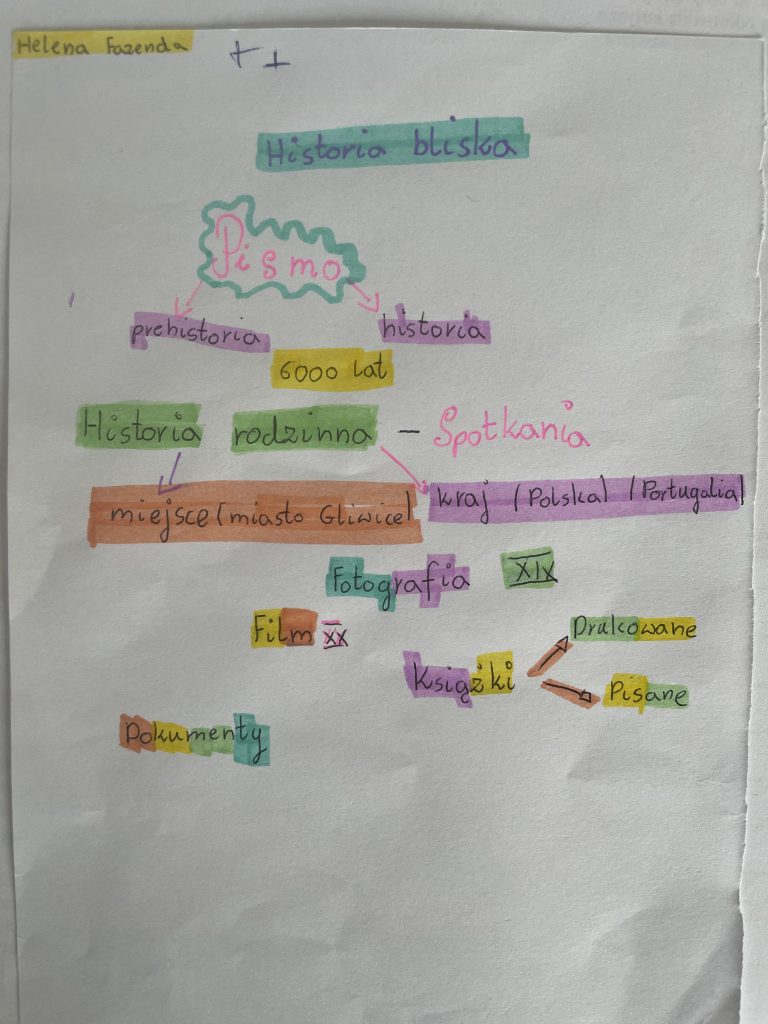 Helena Fazenda
+ +
Historia bliska
Pismo
prehistoria historia
6000 lat
Historia rodzinna – Spotkania
miejsce (miasto Gliwice) kraj (Polska) (Portugalia)
Fotografia XIX
Film XX
Drukowane
Książki
Pisane
Dokumenty